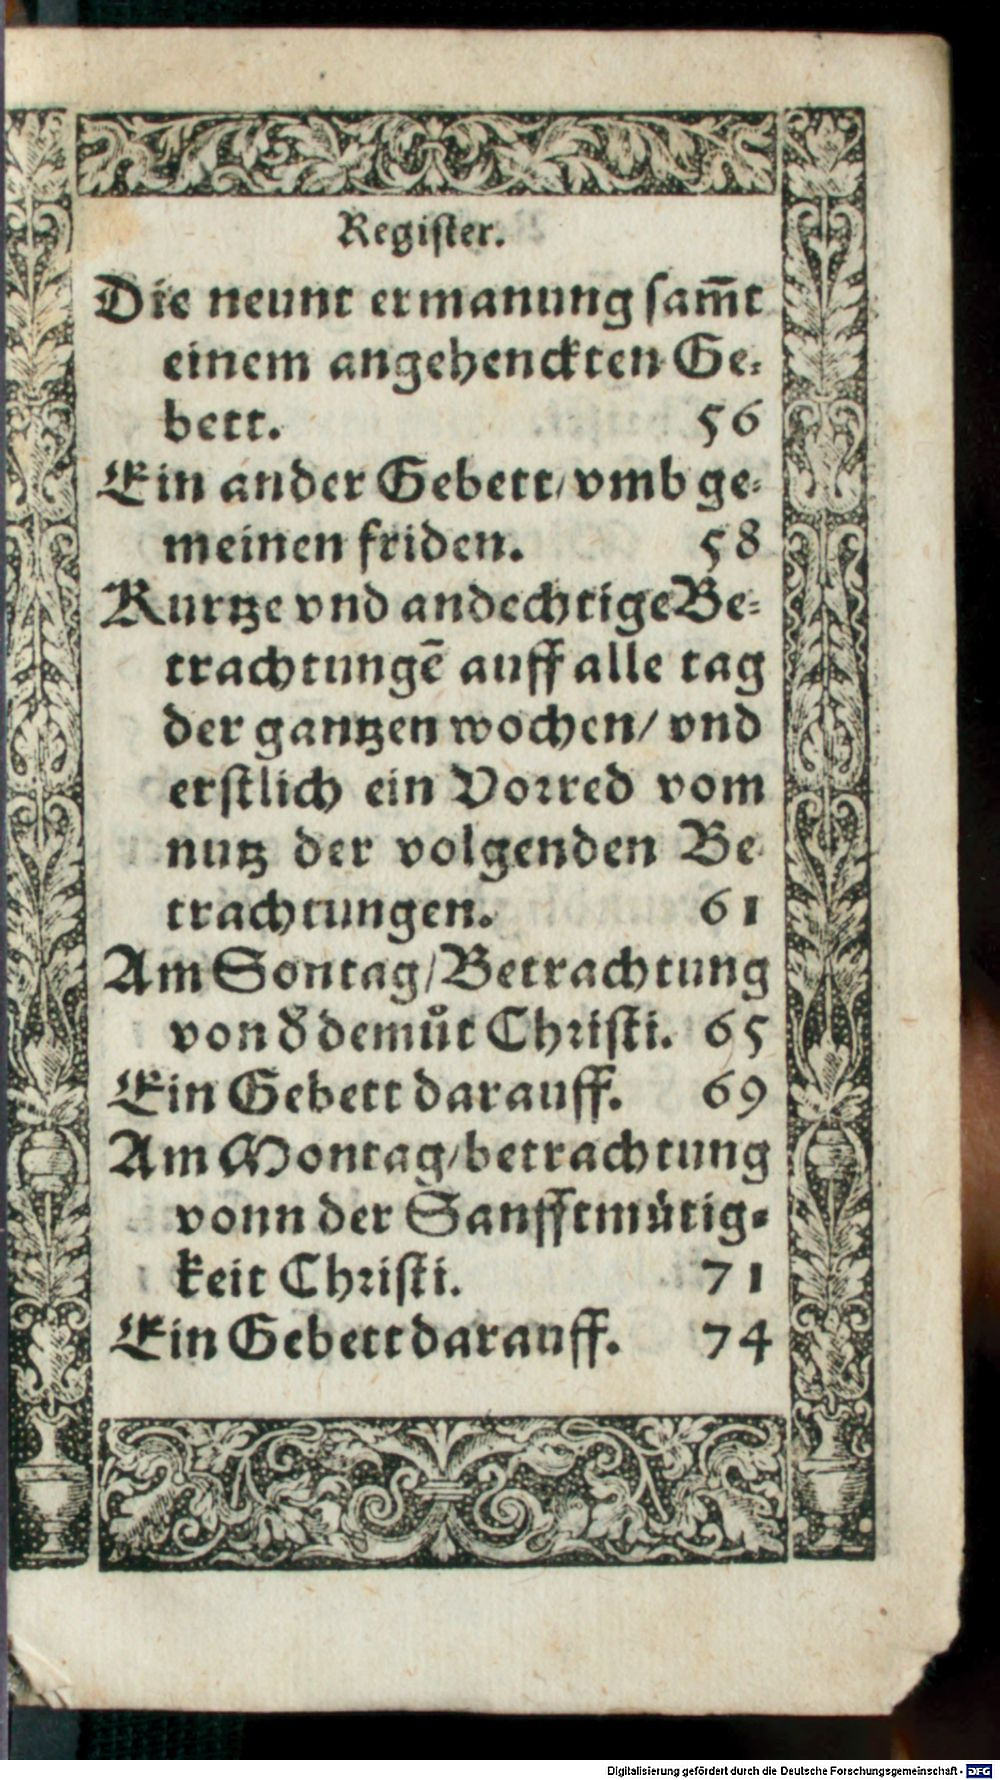 Register.
Die neunt ermanung sam̃t
einem angehenckten Ge⸗
bett. 56
Ein ander Gebett/ vmb ge⸗
meinen friden. 58
Kurtze vnd andechtige Be⸗
trachtungē auff alle tag
der gantzen wochen/ vnd
erstlich ein Vorred vom
nutz der volgenden Be
trachtungen. 61
Am Sontag/ Betrachtung
von d̕ demuͦt Christi. 65
Ein Gebett darauff. 69
Am Montag/ betrachtung
vonn der Sanfftmütig⸗
keit Christi. 71
Ein Gebett darauff. 74
Digitalisierung gefördert durch die Deutsche Forschungsgemeinschaft - DFG